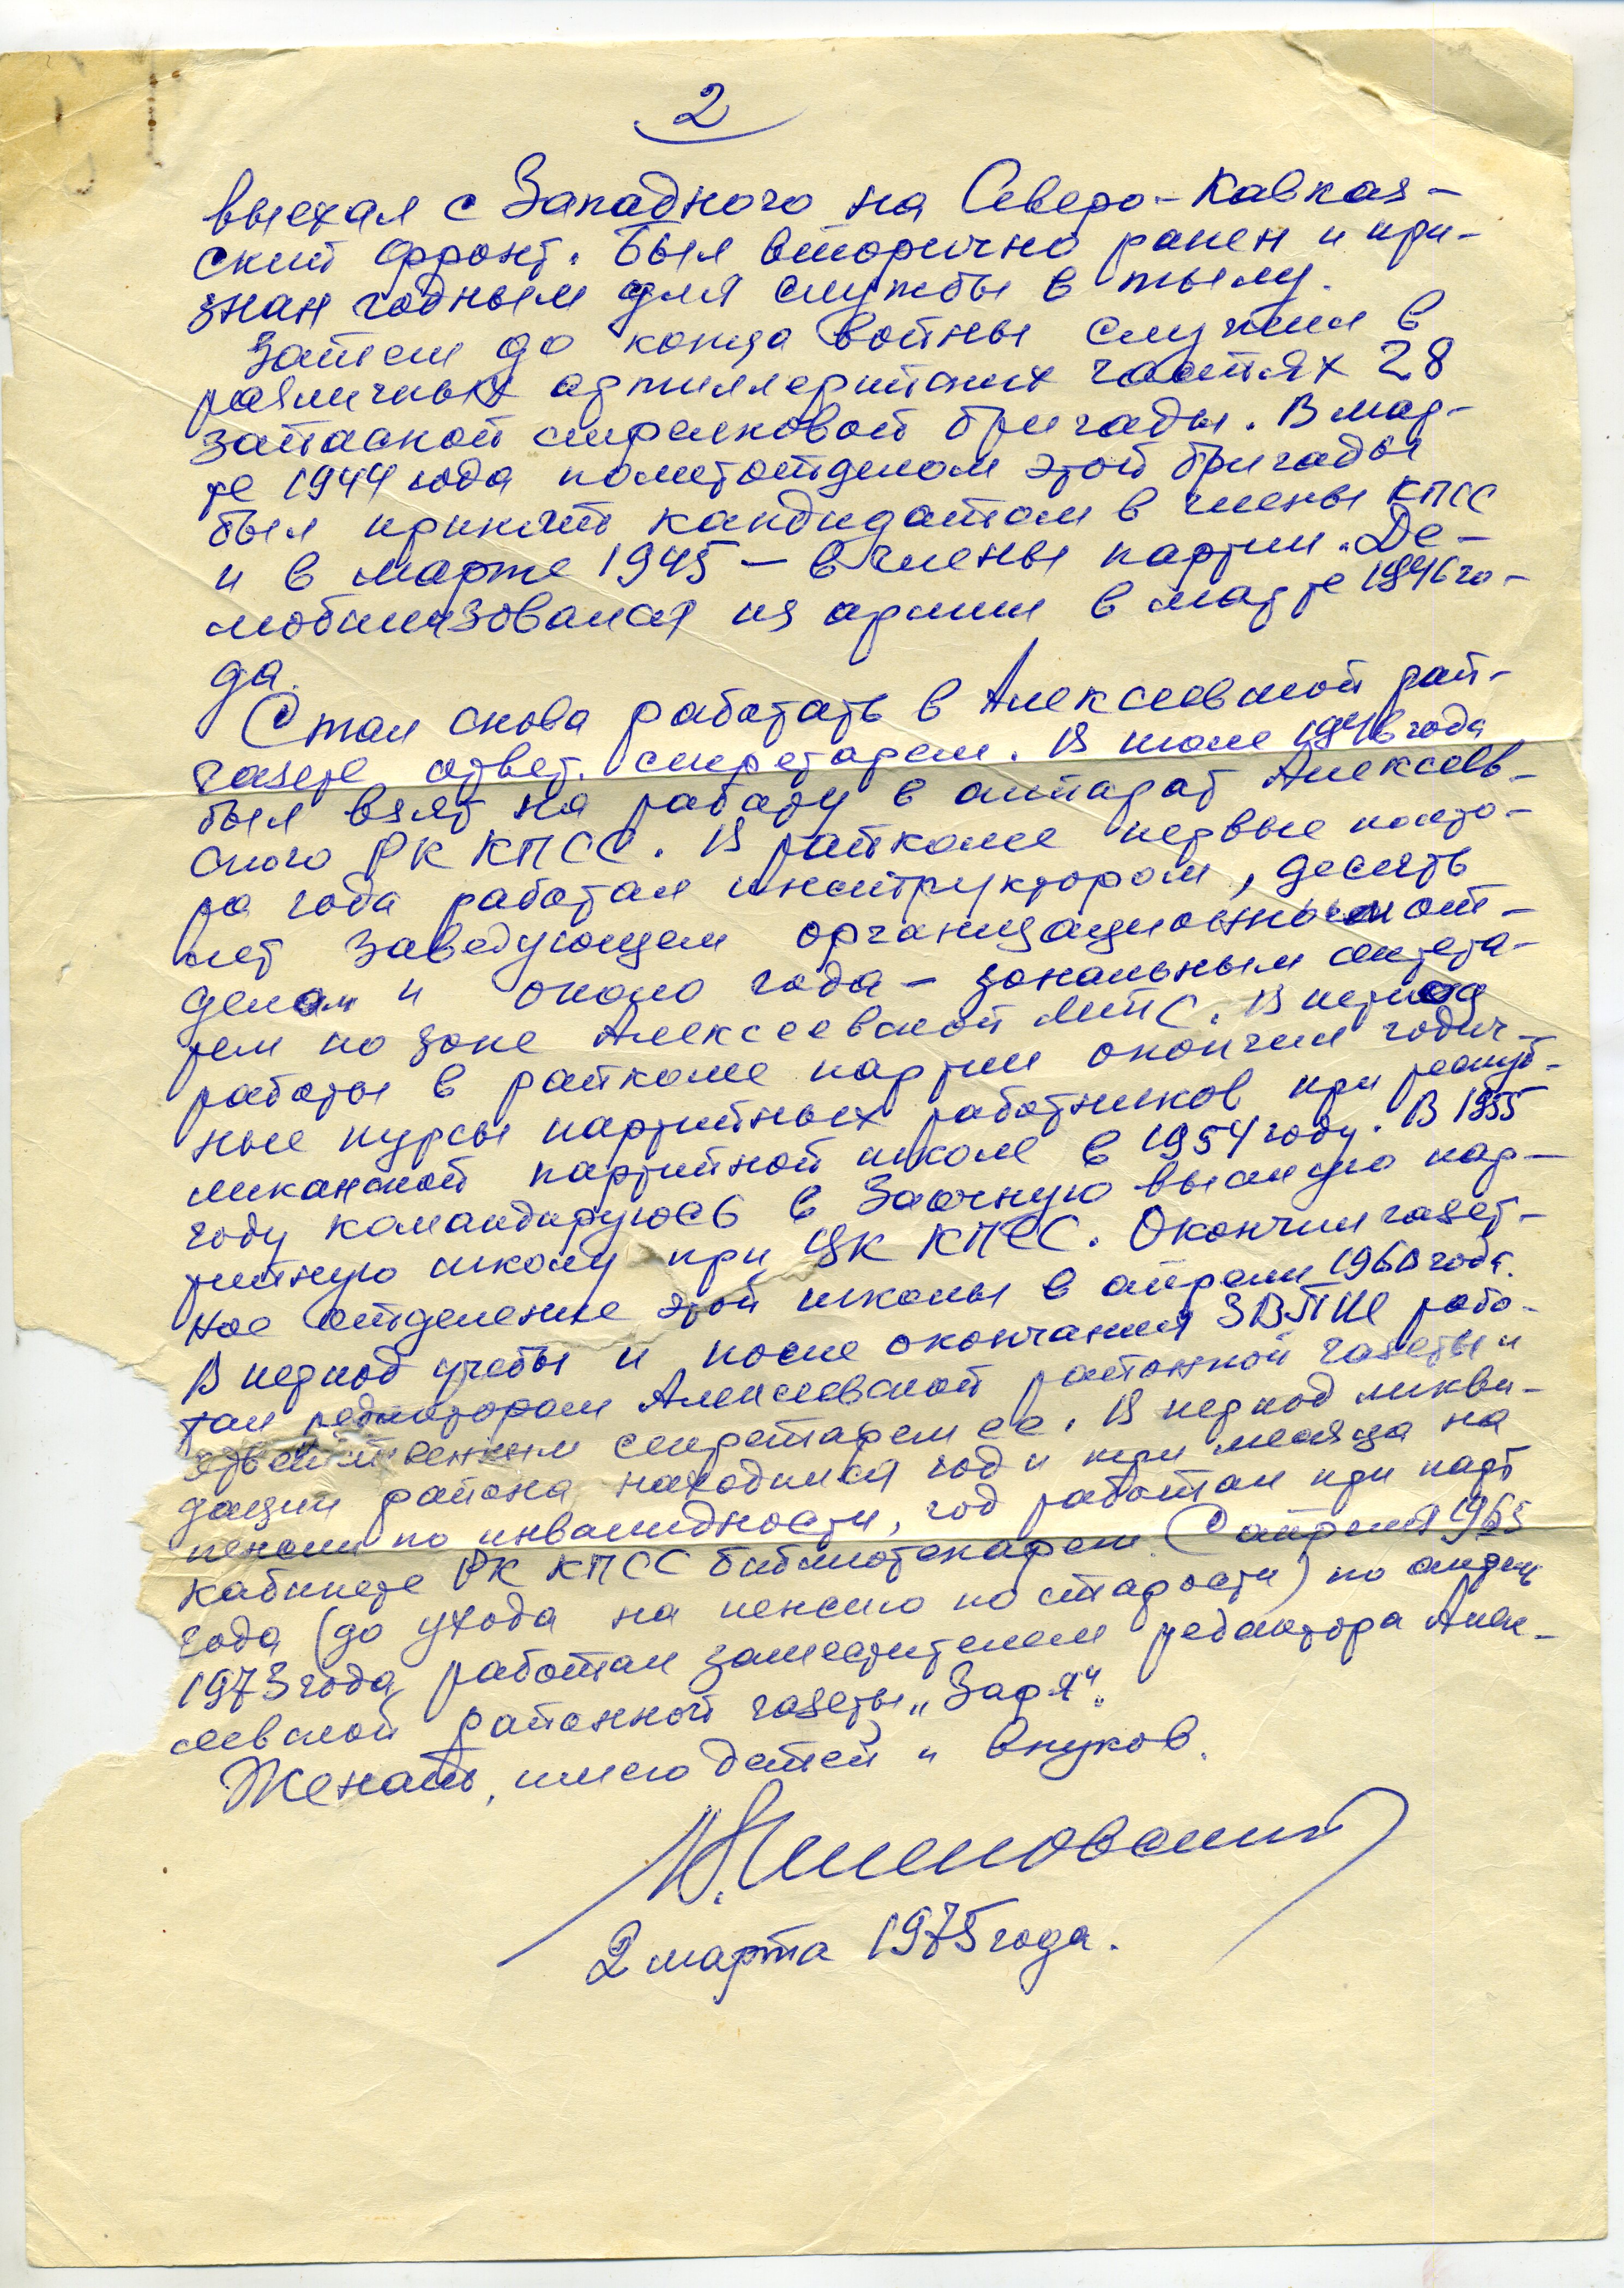 2
выехал с Западного на Северо-Кавказ-
ский фронт. Был вторично ранен и при-
знан годным для службы в тылу.
Затем до конца войны служил в
различных артиллерийских частях 28
запасной стрелковой бригады. В мар-
те 1944 года политотделом этой бригады
был принят кандидатом в члены КПСС
и в марте 1945 – в члены партии. Де-
мобилизовался из армии в марте 1946 го-
да.
Стал снова работать в Алексеевской рай-
газете ответ. секретарем. В июле 1946 года
был взят на работу в аппарат Алексеев-
ского РК КПСС. В райкоме первые полто-
ра года работал инструктором, десять
лет заведующем организационным от-
делом и около года – зональным секрета-
рем по зоне Алексеевской МТС. В период
работы в райкоме партии окончил годич-
ные курсы партийных работников при респуб-
ликанской партийной школе в 1954 году. В 1955
году командируюсь в Заочную высшую пар-
тийную школу при ЦК КПСС. Окончил газет-
ное отделение этой школы в апреле 1960 года.
В период учебы и после окончания ЗВПШ рабо-
тал редактором Алексеевской районной газеты и
ответственным секретарем ее. В период ликви-
дации района находился год и три месяца на
пенсии по инвалидности, год работал при парт
кабинете РК КПСС библиотекарем. С апреля 1965
года (до ухода на пенсию по старости) по
1973 года работал заместителем редактора Алек-
сеевской районной газеты „Заря“.
Женат, имею детей и внуков.
2 марта 1975 года.